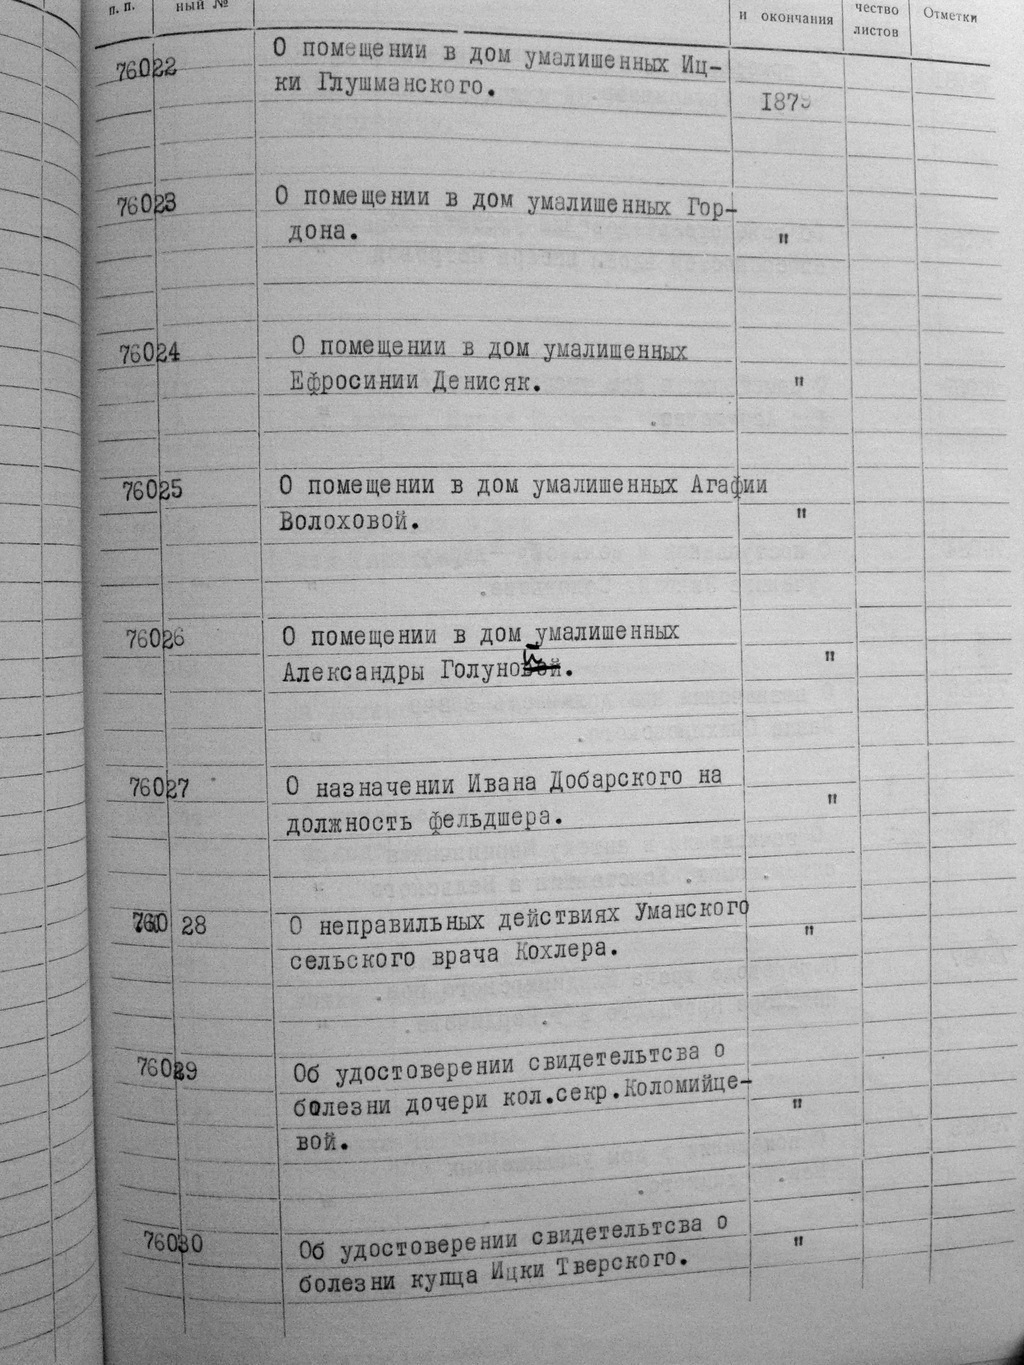 п. п. ный № и окончания чество листов Отметки
76022 О помещении в дом умалишенных Иц-
ки Глушманского. 1879
76023 О помещении в дом умалишенных Гор-
дона. "
76024 О помещении в дом умалишенных
Ефросинии Денисяк. "
76025 О помещении в дом умалишенных Агафии
Волоховой. "
76026 О помещении в дом умалишенных
Александры Голуновой. "
76027 О назначении Ивана Добарского на
должность фельдшера. "
76028 О неправильных действиях Уманского
сельского врача Кохлера. "
76029 Об удостоверении свидетельтсва о
болезни дочери кол.секр.Коломийце-
вой. "
76030 Об удостоверении свидетельтсва о
болезни купца Ицки Тверского. "